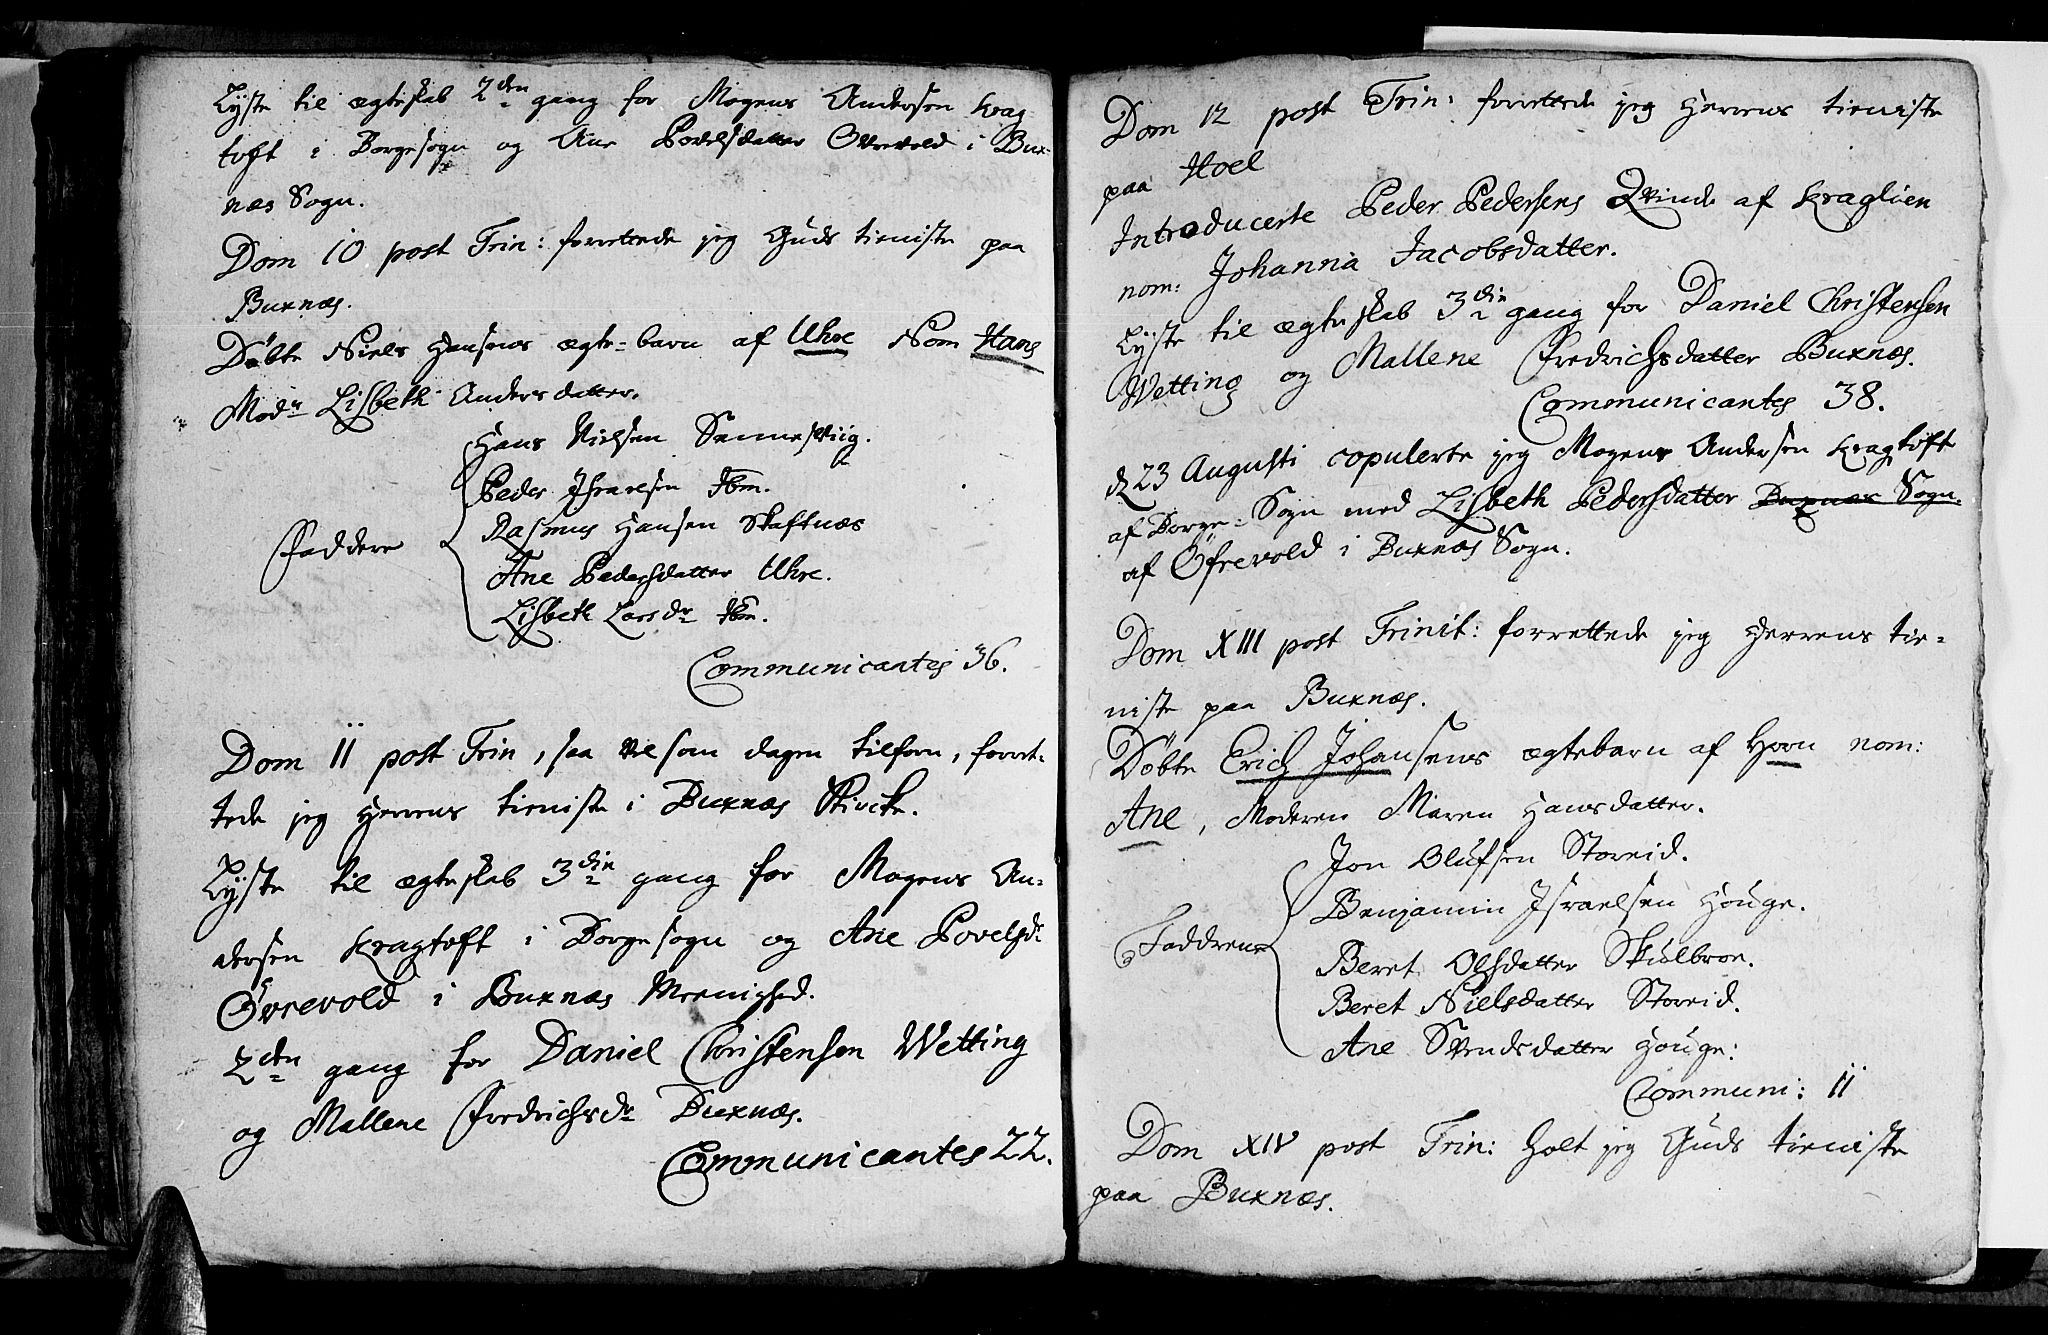 Lyste til ægteskab 2den gang for Mogens Andersen Krag
toft i Borgesogn og Ane Povelsdatter Ovrevold i Bux-
næs Sogn.
Dom 10 post Trin: forrettede jeg Guds tieniste paa
Buxnæs.
Døbte Niels Hansens ægte-barn af Uhre Nom Hans
Modn Lisbeth Andersdatter.
Hans Nielsen Sennesviig.
Peder Israelsen Ibm.
Rasmus Hansen Skaftnæs
Faddere
Ane Pedersdatter Uhre.
Lisbeth Larsdr Ibm.
Communicantes 36.
Dom 11 post Trin, saa vel som dagen tilforn, forret-
tede jeg Herrens tieniste i Buxnæs Kircke.
Lyste til ægteskab 3die gang for Mogens An-
dersen Kragtoft i Borgesogn og Ane Povelsdr
Øvrevold i Buxnæs Meenighed.
2den gang for Daniel Christensen Wetting
og Mallene Fredrichsdr Buxnæs.
Communicantes 22.
Dom 12 post Trin: forrettede jeg Herrens tieniste
paa Hoel
Introducerte Peder Pedersens Qvinde af Kraglien
nom: Johanna Jacobsdatter.
Lyste til ægteskab 3die gang for Daniel Christensen
Wetting og Mallene Fredrichsdatter Buxnæs.
Communicantes 38.
d 23 Augusti copulerte jeg Mogens Andersen Kragtoft
af Borge-Sogn med Lisbeth Pedersdatter Buxnæs Sogn.
af Øfrevold i Buxnæs Sogn.
Dom XIII post Trinit: forrettede jeg Herrens tie-
niste paa Buxnæs.
Døbte Erich Johansens ægtebarn af Horn nom:
Ane, Moderen Maren Hansdatter.
Jon Olufsen Storeid.
Benjamin Israelsen Houge.
Faddrene
Beret Olsdatter Skulbroe.
Beret Nielsdatter Storeid.
Ane Svendsdatter Houge:
Communi: 11
Dom XIV post Trin: holt jeg Guds tieniste
paa Buxnæs.